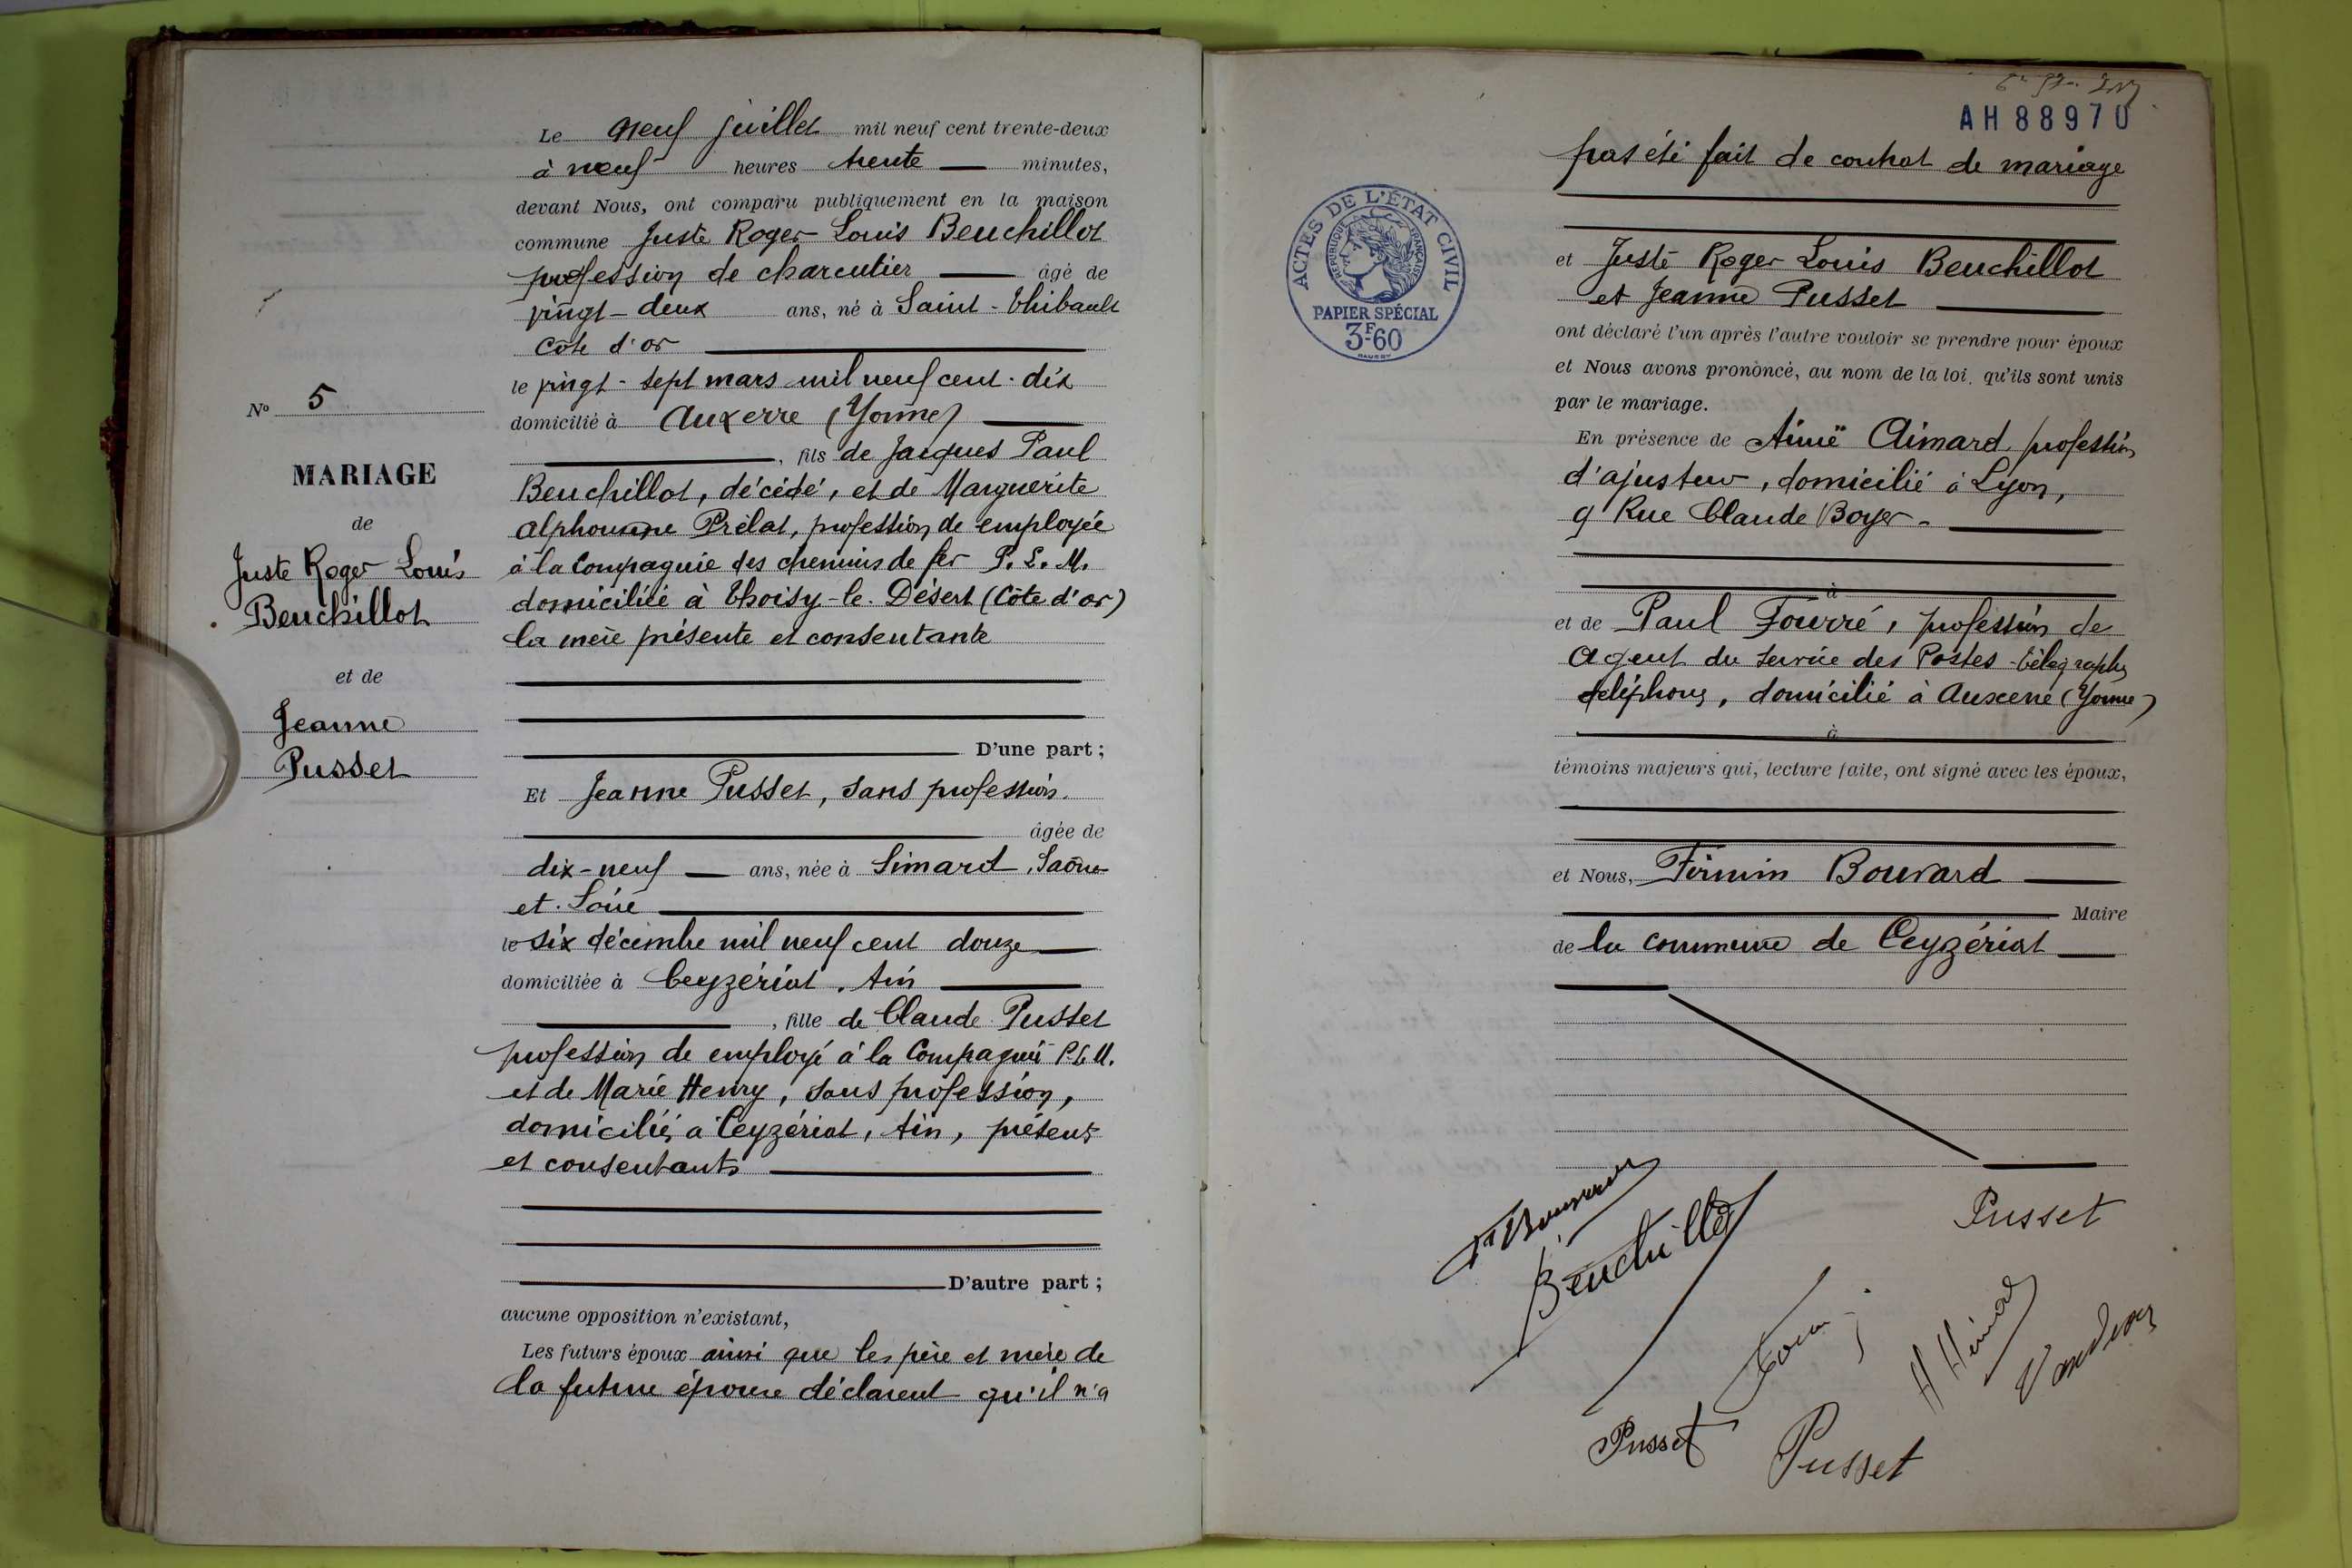 Le neuf juillet mil neuf cent trente-deux
à neuf heures trente minutes,
devant Nous, ont comparu publiquement en la maison
commune Juste Roger Louis Beuchillot
profession de charcutier âgé de
vingt-deux ans, né à Saint-Thibault
Côte d'or
le vingt-sept mars mil neuf cent-dix
domicilié à Auxerre (Yonne)
, fils de Jacques Paul
Beuchillot, décédé, et de Marguerite
Prélat, profession de employée
à la Compagnie des chemins de fer P. L. M.
domiciliée à Thoisy-le-Désert (Côte d'or)
la mère présente et consentante
D'une part ;
Et Jeanne Pusset, sans profession.
âgée de
dix-neuf ans, née à Simard, Saône-
et-Loire
le six décembre mil neuf cent douze
domiciliée à Ceyzériat, Ain
, fille de Claude Pusset
profession de employé à la Compagnie P.L.M.
et de Marie Henry, sans profession,
domiciliés à Ceyzériat, Ain, présents
et consentants
D'autre part ;
aucune opposition n'existant,
Les futurs époux ainsi que les père et mère de
la future épouse déclarent qu'il n'a
No 5
MARIAGE
de
Juste Roger Louis
Beuchillot
et de
Jeanne
Pusset
AH88970
pas été fait de contrat de mariage
ACTES DE L'ÉTAT CIVIL
RÉPUBLIQUE FRANÇAISE
PAPIER SPÉCIAL
3F60
et Juste Roger Louis Beuchillot
et Jeanne Pusset
ont déclaré l'un après l'autre vouloir se prendre pour époux
et Nous avons prononcé, au nom de la loi, qu'ils sont unis
par le mariage.
En présence de Aimé Aimard, profession
d'ajusteur, domicilié à Lyon,
9 Rue Claude Boyer.
à
et de Paul Fourré, profession de
agent du service des Postes-télégraphes
téléphones, domicilié à Auxerre (Yonne)
à
témoins majeurs qui, lecture faite, ont signé avec les époux,
et Nous, Firmin Bouvard
Maire
de la commune de Ceyzériat
Beuchillot
Pusset
Pusset
Pusset